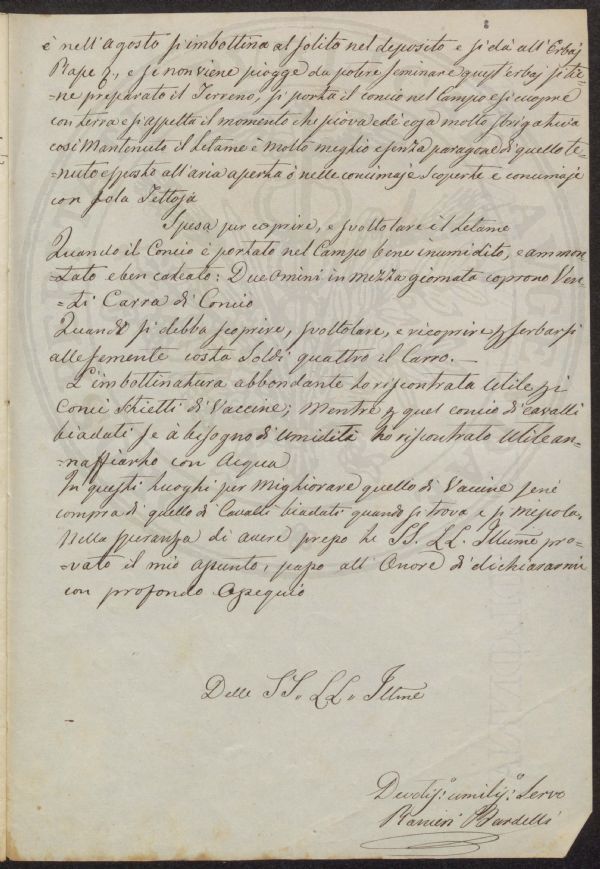 è nell'agosto si imbottina al solito nel deposito e si dà all'Erbaj
Rape &, e se non viene piogge da potere seminare quest'erbaj si tie-
-ne preparato il Terreno, si porta il concio nel Campo e si cuopre
con terra e si aspetta il momento che piova ed è cosa molto sbrigativa
così Mantenuto il Letame è Molto meglio e senza paragone di quello te-
-nuto esposto all'aria aperta ò nelle concimaje scoperte e concimaje
con sola Tettoja
Spesa per coprire, e svoltolare il letame
Quando il Concio è portato nel Campo bene inumidito, e ammon-
-tato e ben calcato: Due Omini in mezza giornata coprono Ven-
-ti Carra di Concio
Quando si debba scoprire, svoltolare, e ricoprire p serbarsi
alle semente costa Soldi quattro il Carro.—
L'imbottinatura abbondante la riscontrata Utile pi
Conci Schietti di Vaccine; Mentre p quel concio di cavalli
biadati se à bisogno di umidità ho riscontrato Utile an-
-naffiarlo con Acqua
In questi luoghi per Migliorare quello di Vaccine sene
compra di quello di Cavalli biadati quando si trova e si mescola.
Nella speranza di avere presso le SS. LL. Illume pro-
-vato il mio assunto, passo all'Onore di dichiararmi
con profondo Ossequio
Delle SS. LL. Illme
Devotis:o umilis:o Servo
Ranieri Bardelli